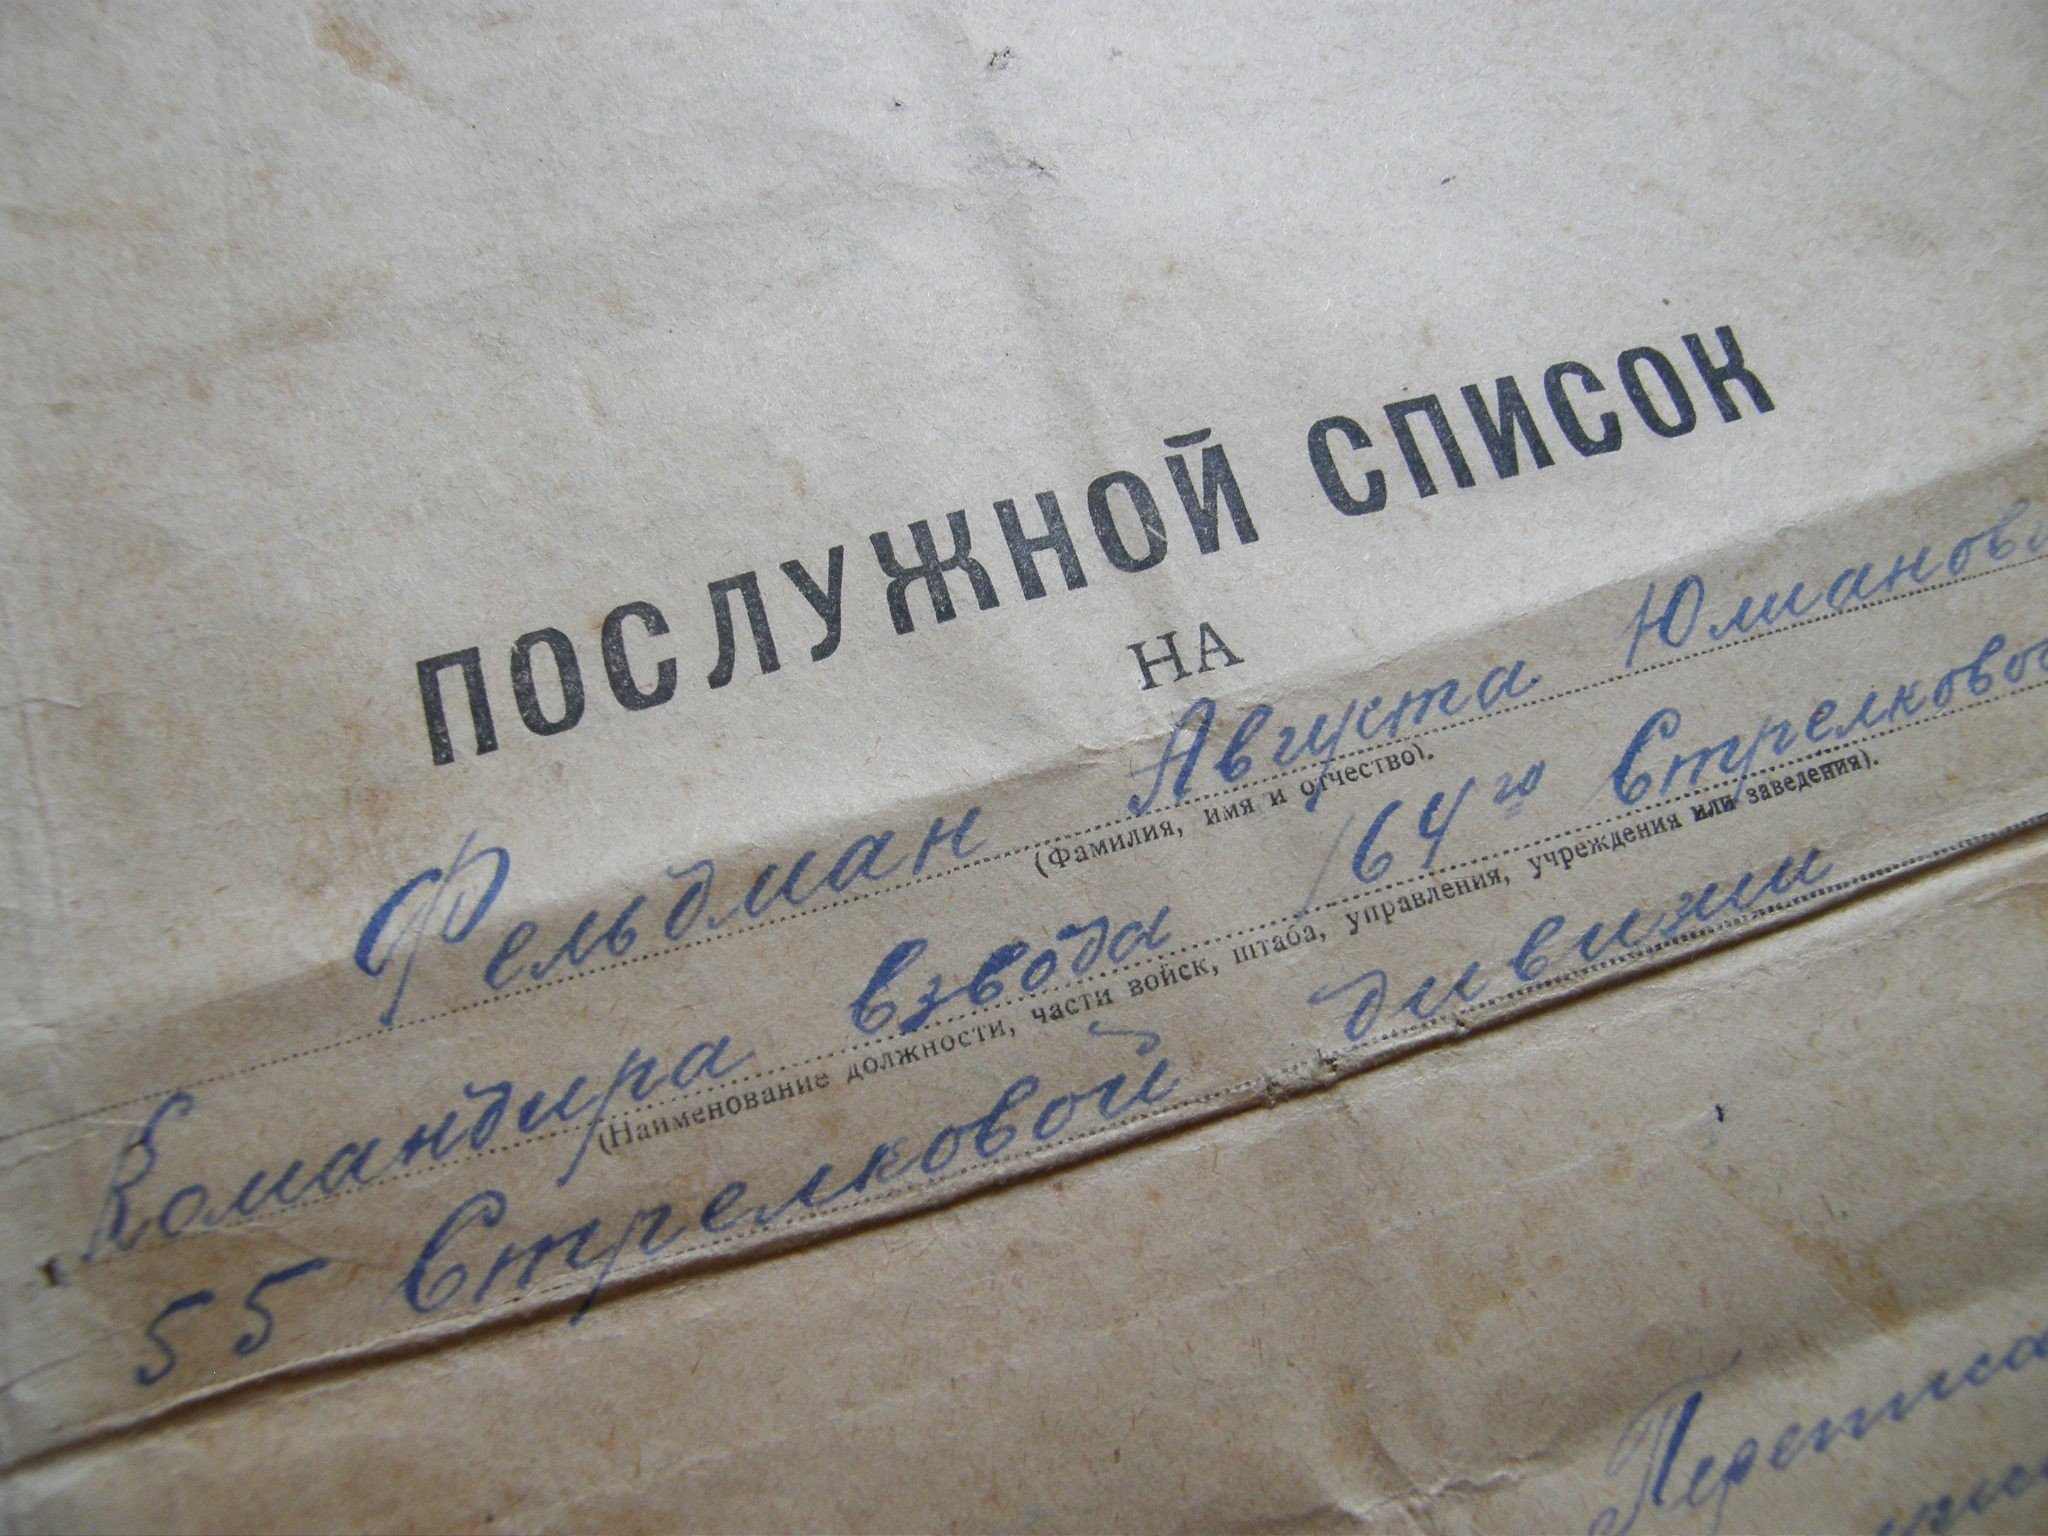 ПОСЛУЖНОЙ СПИСОК
НА
Фельдман Августа Юлианови
(Фамилия, имя и отчество).
Командира взвода 164го Стрелковог
(Наименование должности, части войск, штаба, управления, учреждения или заведения).
55 Стрелковой дивизии
Переписа